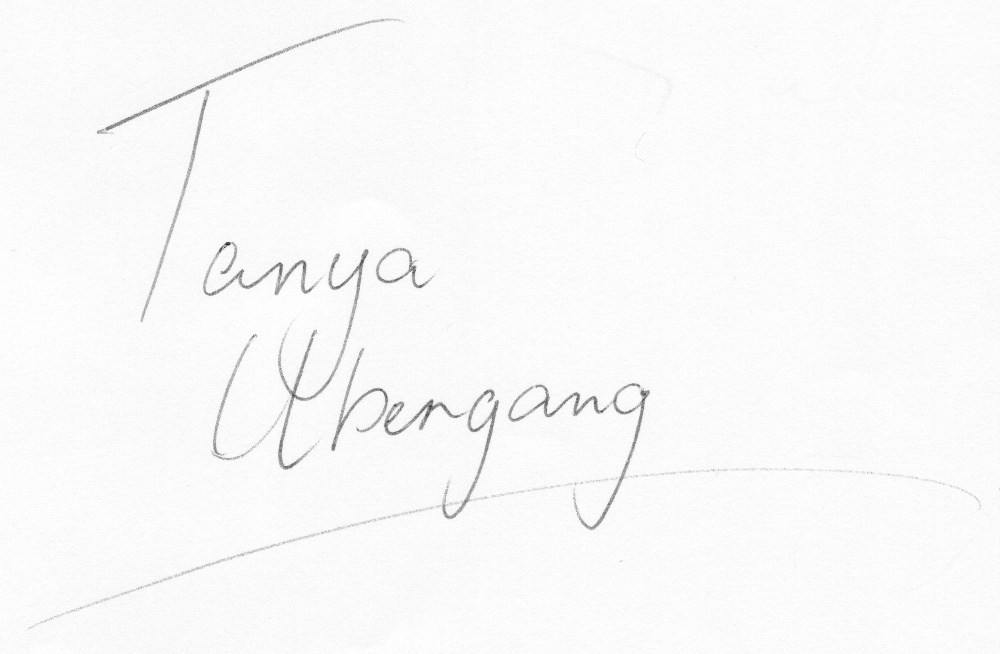 Tanya
Ubergang